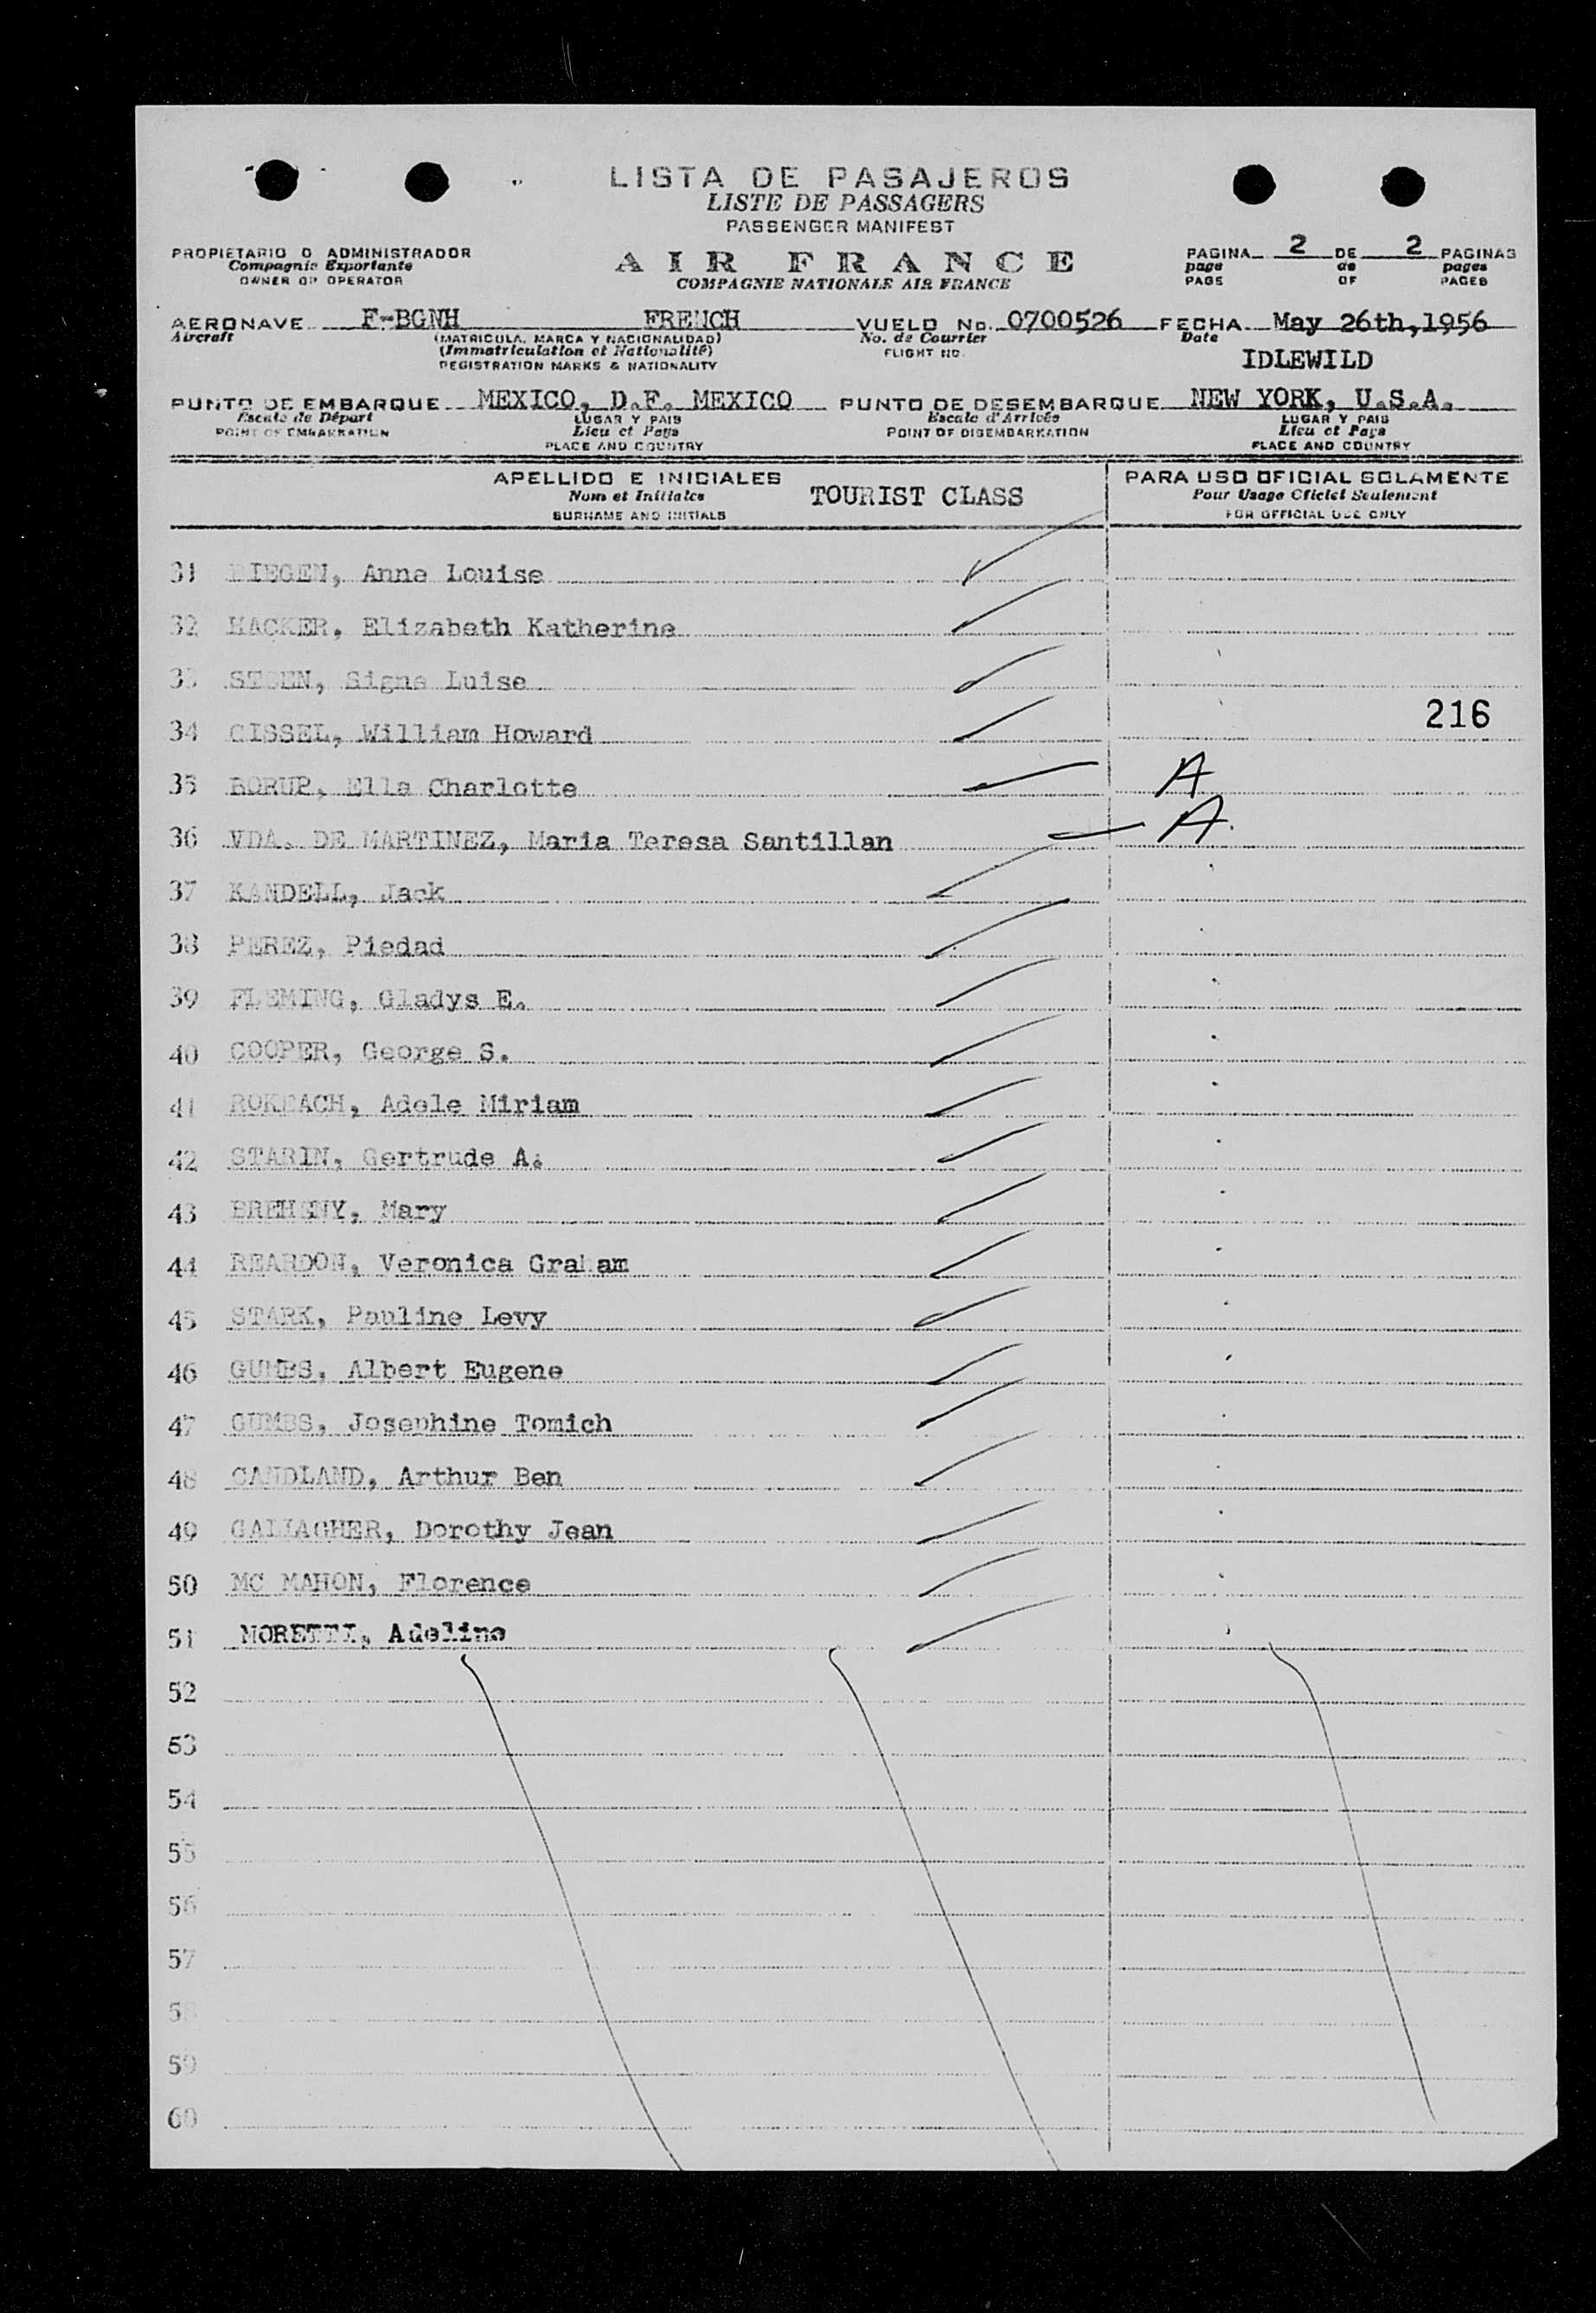 LISTA DE PASAJEROS
LISTE DE PASSAGERS
PASSENGER MANIFEST
PROPIETARIO O ADMINISTRADOR
Compagnie Exportante
OWNER OR OPERATOR
AIR FRANCE
COMPAGNIE NATIONALE AIR FRANCE
PAGINA 2 DE 2 PAGINAS
page de pages
PAGE OF PAGES
AERONAVE F-BGNH FRENCH VUELO No. 0700526 FECHA May 26th,1956
Aircraft (MATRICULA, MARCA Y NACIONALIDAD) No. de Courrier Date
(Immatriculation et Nationalité) FLIGHT NO.
REGISTRATION MARKS & NATIONALITY
IDLEWILD
PUNTO DE EMBARQUE MEXICO, D.F. MEXICO PUNTO DE DESEMBARQUE NEW YORK, U.S.A.
Escale de Départ LUGAR Y PAIS Escale d'Arrivée LUGAR Y PAIS
POINT OF EMBARKATION Lieu et Pays POINT OF DISEMBARKATION Lieu et Pays
PLACE AND COUNTRY PLACE AND COUNTRY
APELLIDO E INICIALES TOURIST CLASS PARA USO OFICIAL SOLAMENTE
Nom et Initiales Pour Usage Officiel Seulement
SURNAME AND INITIALS FOR OFFICIAL USE ONLY
31 Anne Louise
32 HACKER, Elizabeth Katherine
33 Signe Luise
216
34 CISSEL, William Howard
35 BORUP, Ella Charlotte A
36 VDA. DE MARTINEZ, Maria Teresa Santillan A.
37 KANDELL, Jack
38 PEREZ, Piedad
39 FLEMING, Gladys E.
40 COOPER, George S.
41 ROKEACH, Adele Miriam
42 STARIN, Gertrude A.
43 BREHENY, Mary
44 REARDON, Veronica Graham
45 STARK, Pauline Levy
46 GUMBS, Albert Eugene
47 GUMBS, Josephine Tomich
48 CANDLAND, Arthur Ben
49 GALLAGHER, Dorothy Jean
50 MC MAHON, Florence
51 MORETTI, Adelino
52
53
54
55
56
57
58
59
60